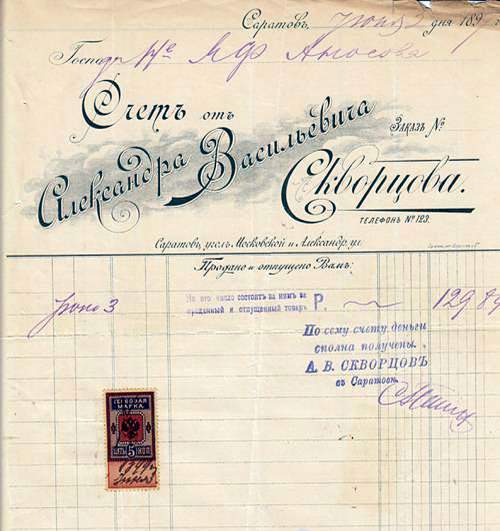 Саратовъ, Июня 2 дня 189
Господ
Счетъ отъ
Александра Васильевича
Скворцова.
Заказъ №
Телефонъ № 123.
Саратовъ, уголъ Московской и Александр. ул.
Продано и отпущено Вамъ:
На это число состоитъ за нимъ за
проданный и отпущенный товаръ Р.
129 8
По сему счету деньги
сполна получены.
А. В. СКВОРЦОВЪ
въ Саратовѣ.
ГЕРБОВАЯ
МАРКА
5 КОП